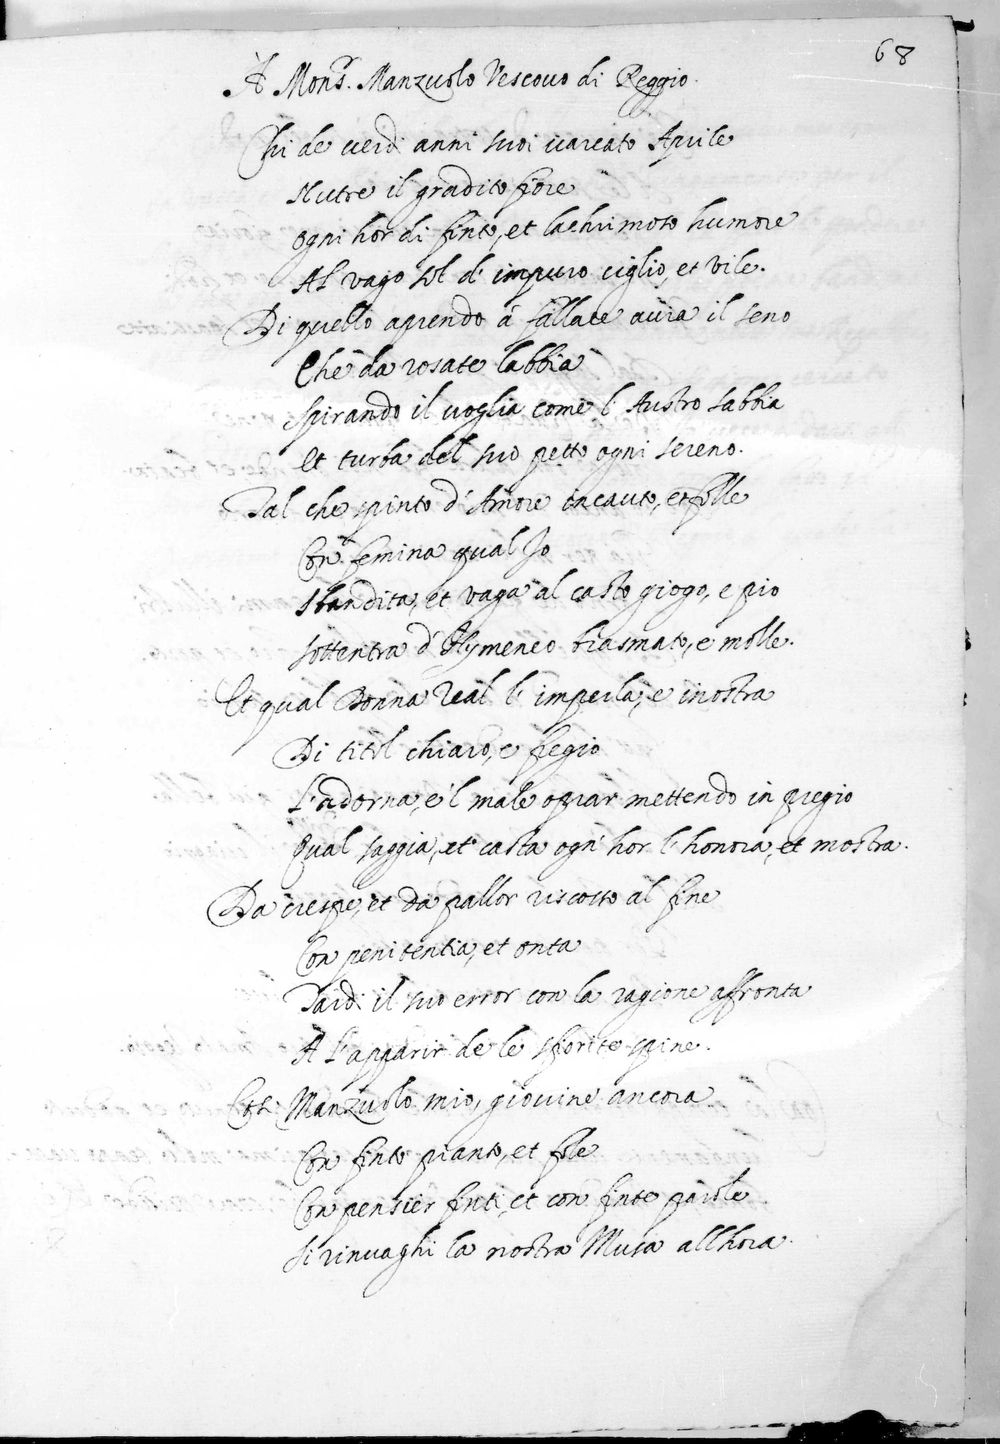 68
A Mons.r Manzuolo Vescouo di Reggio.
Chi de uerdi anni suoi uarcato Aprile
Nutre il gradito fiore
Ogni hor di finto, et lachrimoso humore
Al vago sol d'impuro ciglio, et vile.
Di quello aprendo à fallace aura il seno
Che da rosate labbia
Spirando il uoglia come l'Austro sabbia
Et turba del suo petto ogni sereno.
Tal che spinto d'Amore incauto, et folle
Con femina qual Io
Sbandita, et vaga al casto giogo, e pio
Sottentra d'Hymeneo biasmato, e molle.
Et qual Donna Real l'imperla, e inostra
Di titol chiaro, e fregio
L'adorna, e'l male oprar mettendo in pregio
Qual saggia, et casta ogn'hor l'honora, et mostra.
Da crespe, et da pallor riscosso al fine
Con penitentia, et onta
Tardi il suo error con la ragione affronta
A l'apparir de le sfiorite spine.
Così Manzuolo mio, giouine ancora
Con finto pianto, et fole
Con pensier finti, et con finte parole
Si rinuaghi la nostra Musa allhora.